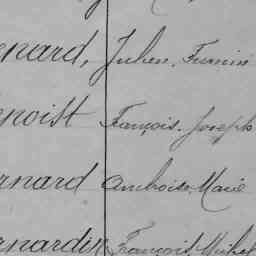 enard, Julien, Firmin
enoist François, Joseph
rnard Ambroise, Marie
rnardin François, Michel